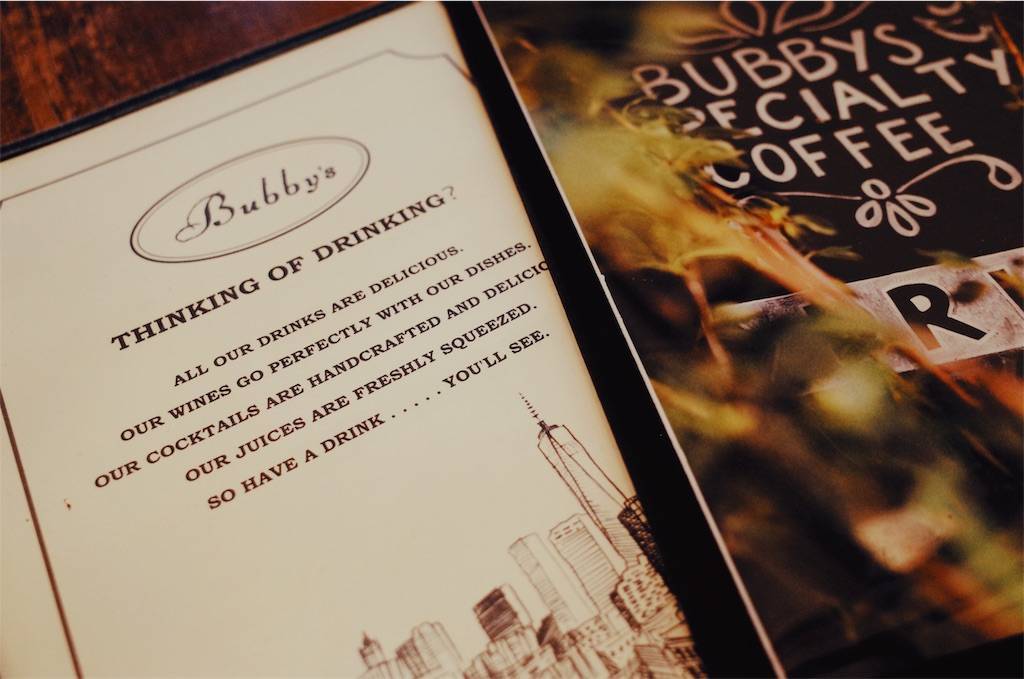 Bubby's
THINKING OF DRINKING?
ALL OUR DRINKS ARE DELICIOUS.
OUR WINES GO PERFECTLY WITH OUR DISHES.
OUR COCKTAILS ARE HANDCRAFTED AND DELICIO
OUR JUICES ARE FRESHLY SQUEEZED.
SO HAVE A DRINK ...... YOU'LL SEE.
BUBBYS
PECIALTY
COFFEE
R